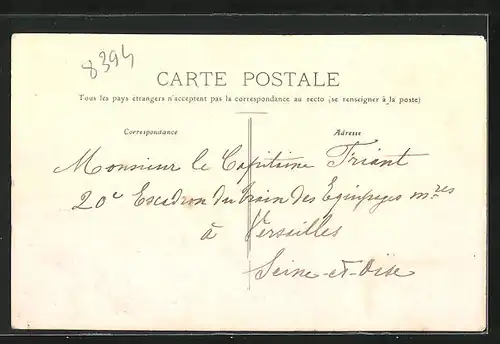 8394
CARTE POSTALE
Tous les pays étrangers n'acceptent pas la correspondance au recto (se renseigner à la poste)
Correspondance
Adresse
Monsieur le Capitaine Friant
20e Escadron du train des Equipages m.res
à Versailles
Seine-et-Oise